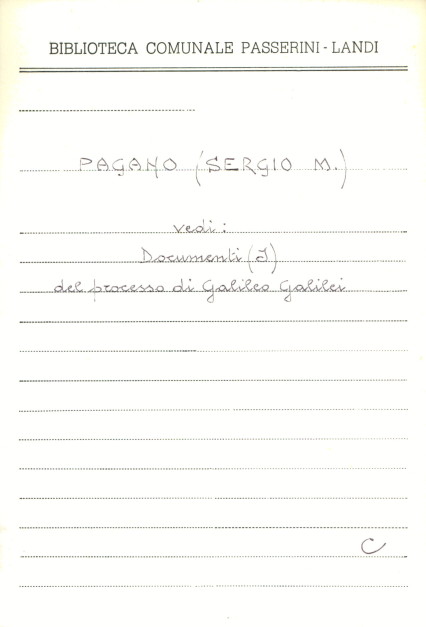 BIBLIOTECA COMUNALE PASSERINI - LANDI
PAGANO (SERGIO M.)
vedi:
Documenti (I)
del processo di Galileo Galilei
C